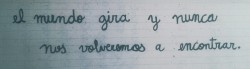 el mundo gira y nunca
nos volveremos a encontrar.